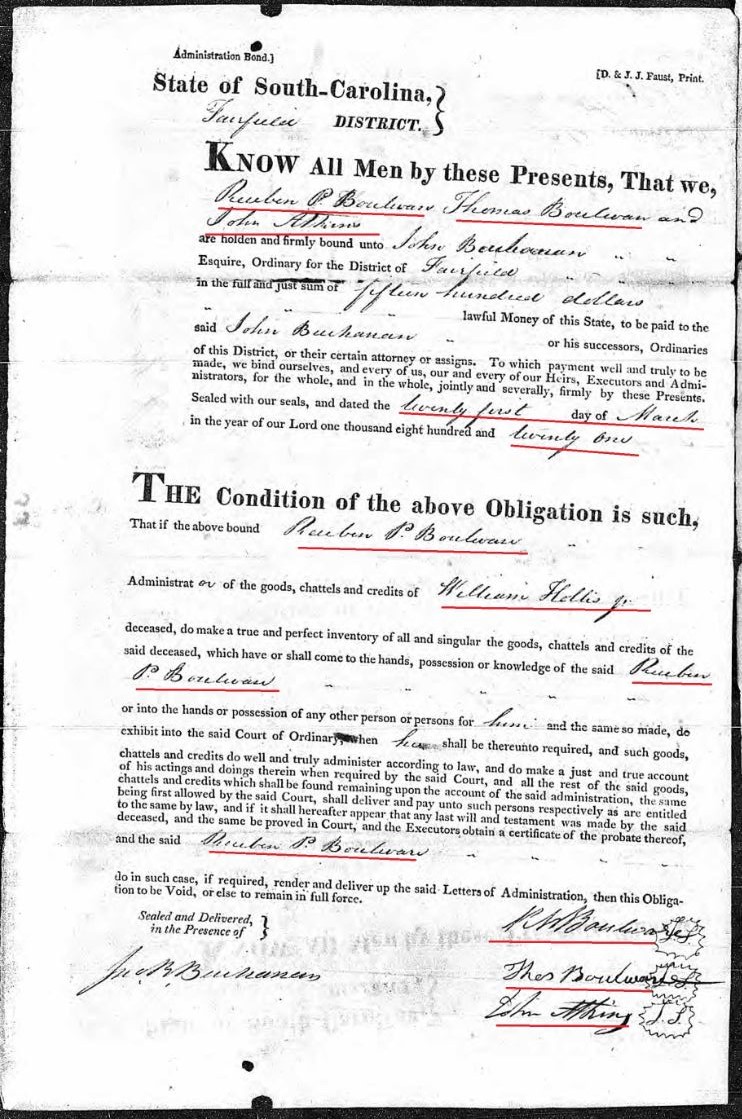 Administration Bond.]
[D. & J. J. Faust, Print.
State of South-Carolina,}
Fairfield DISTRICT.
KNOW All Men by these Presents, That we,
Reuben P. Boulwar, Thomas Boulwar and
John Atkins
are holden and firmly bound unto John Buchanan " "
Esquire, Ordinary for the District of Fairfield " " "
in the full and just sum of fifteen hundred dollars
" " lawful Money of this State, to be paid to the
said John Buchanan " or his successors, Ordinaries
of this District, or their certain attorney or assigns. To which payment well and truly to be
made, we bind ourselves, and every of us, our and every of our Heirs, Executors and Admi-
nistrators, for the whole, and in the whole, jointly and severally, firmly by these Presents.
Sealed with our seals, and dated the twenty first day of March
in the year of our Lord one thousand eight hundred and twenty one
THE Condition of the above Obligation is such,
That if the above bound Reuben P. Boulwar "
Administrat or of the goods, chattels and credits of William Hollis jr
deceased, do make a true and perfect inventory of all and singular the goods, chattels and credits of the
said deceased, which have or shall come to the hands, possession or knowledge of the said Reuben
P. Boulwar " " " " "
or into the hands or possession of any other person or persons for him and the same so made, do
exhibit into the said Court of Ordinary, when he shall be thereunto required, and such goods,
chattels and credits do well and truly administer according to law, and do make a just and true account
of his actings and doings therein when required by the said Court, and all the rest of the said goods,
chattels and credits which shall be found remaining upon the account of the said administration, the same
being first allowed by the said Court, shall deliver and pay unto such persons respectively as are entitled
to the same by law, and if it shall hereafter appear that any last will and testament was made by the said
deceased, and the same be proved in Court, and the Executors obtain a certificate of the probate thereof,
and the said Reuben P. Boulwar " " " "
do in such case, if required, render and deliver up the said Letters of Administration, then this Obliga-
tion to be Void, or else to remain in full force.
Sealed and Delivered, }
in the Presence of
Boulwar L.S.
Jno. R. Buchanan
Thos Boulwar L.S.
John Atkins L.S.